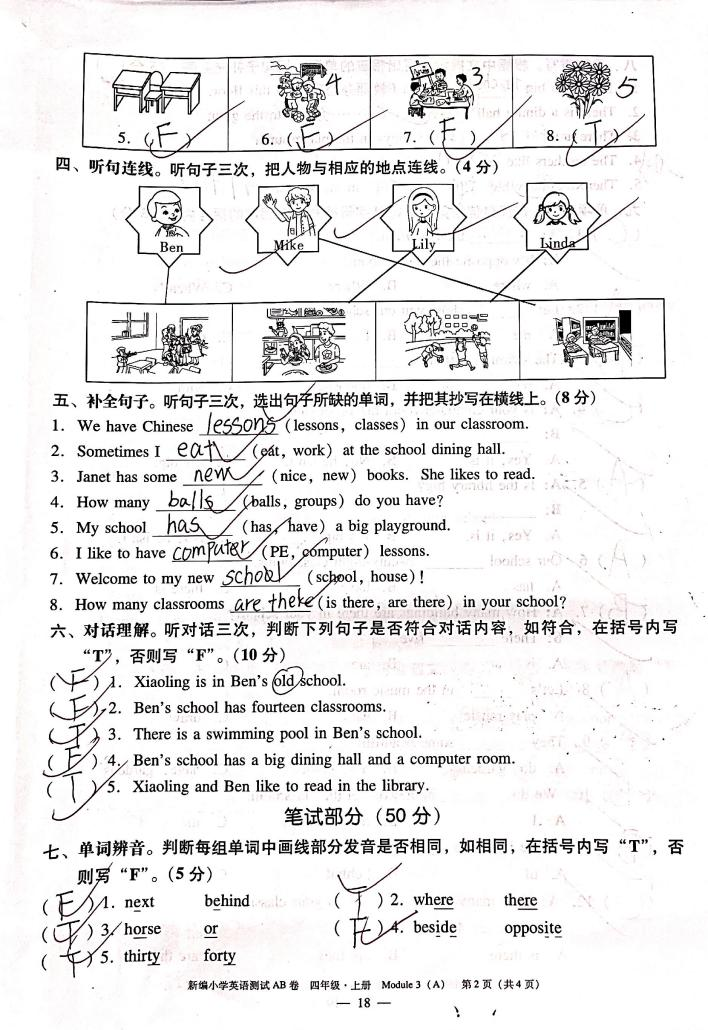 4 3 5
5. ( F ) 6. ( F ) 7. ( F ) 8. ( T )
四、听句连线。听句子三次，把人物与相应的地点连线。(4 分)
Ben Mike Lily Linda
五、补全句子。听句子三次，选出句子所缺的单词，并把其抄写在横线上。(8 分)
1. We have Chinese lessons (lessons, classes) in our classroom.
2. Sometimes I eat (eat, work) at the school dining hall.
3. Janet has some new (nice, new) books. She likes to read.
4. How many balls (balls, groups) do you have?
5. My school has (has, have) a big playground.
6. I like to have computer (PE, computer) lessons.
7. Welcome to my new school (school, house)!
8. How many classrooms are there (is there, are there) in your school?
六、对话理解。听对话三次，判断下列句子是否符合对话内容，如符合，在括号内写
“T”，否则写“F”。(10 分)
( F ) 1. Xiaoling is in Ben's old school.
( F ) 2. Ben's school has fourteen classrooms.
( T ) 3. There is a swimming pool in Ben's school.
( F ) 4. Ben's school has a big dining hall and a computer room.
( T ) 5. Xiaoling and Ben like to read in the library.
笔试部分 (50 分)
七、单词辨音。判断每组单词中画线部分发音是否相同，如相同，在括号内写“T”，否
则写“F”。(5 分)
( F ) 1. next behind ( T ) 2. where there
( T ) 3. horse or ( F ) 4. beside opposite
( T ) 5. thirty forty
新编小学英语测试 AB 卷 四年级·上册 Module 3 (A) 第 2 页 (共 4 页)
— 18 —